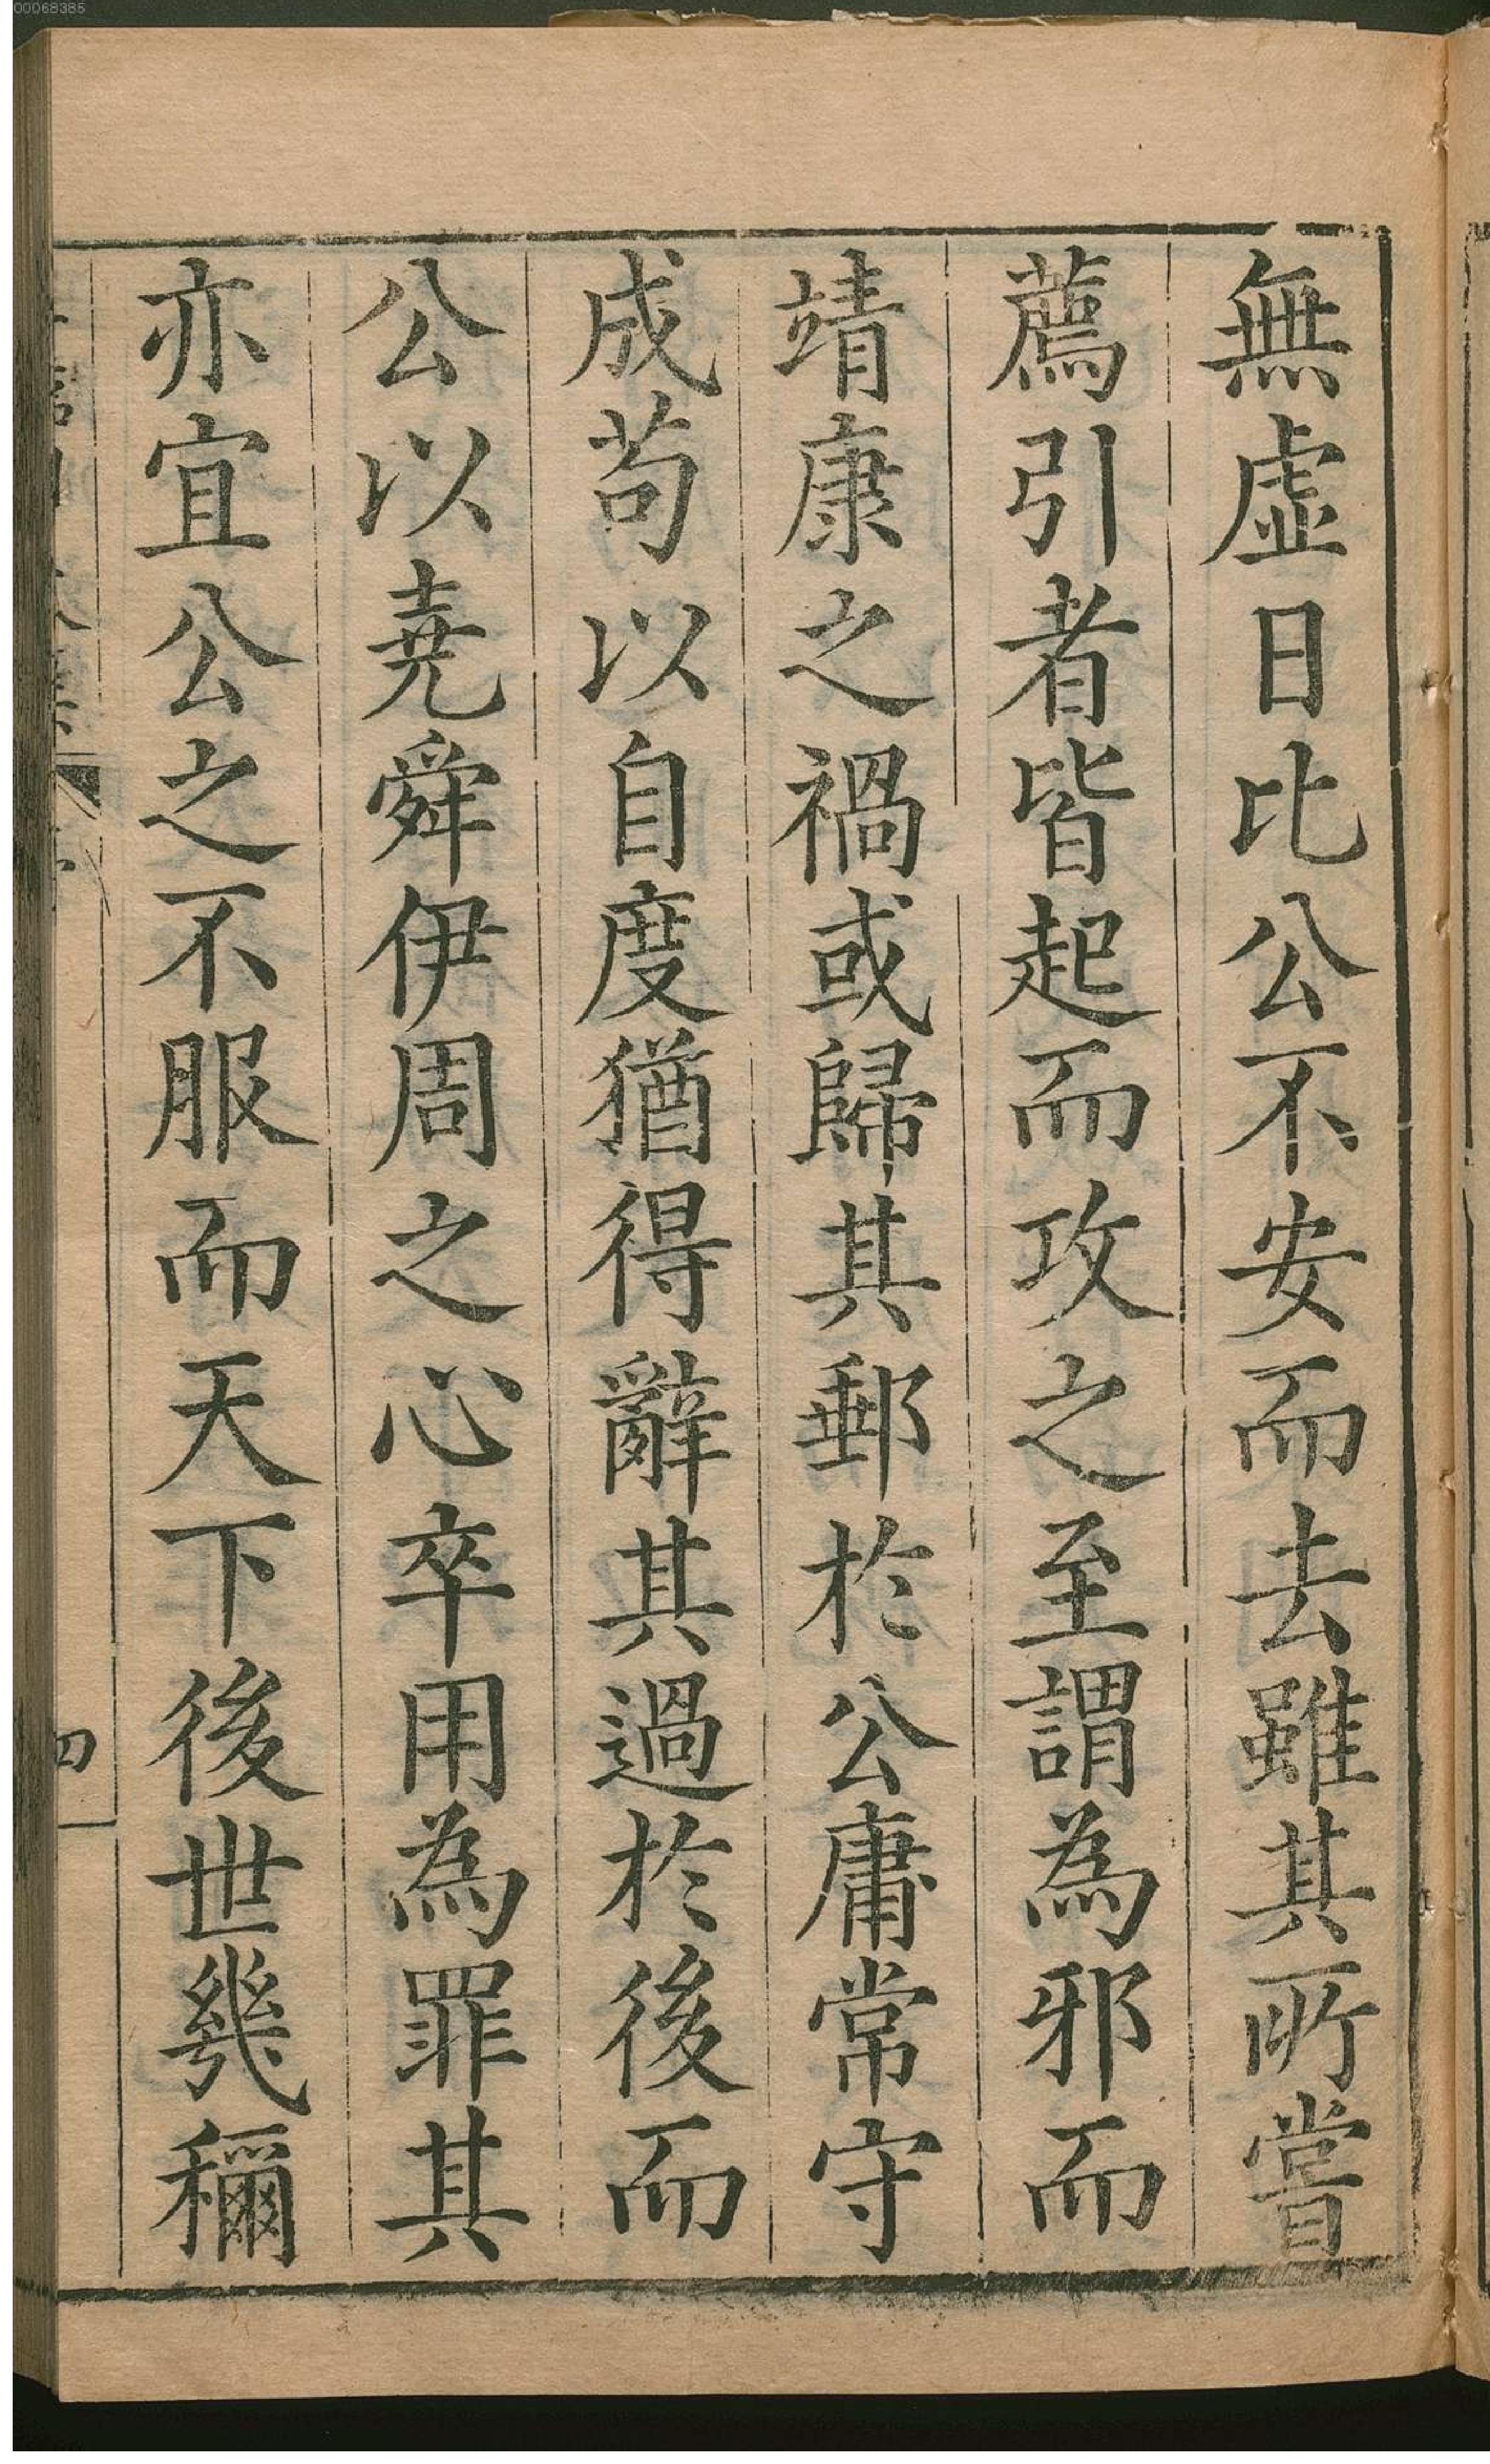 00068385
無虛日比公不安而去雖其所嘗
薦引者皆起而攻之至謂為邪而
靖康之禍或歸其郵於公庸常守
成苟以自度猶得辭其過於後而
公以堯舜伊周之心卒用為罪其
亦宜公之不服而天下後世幾稱
四